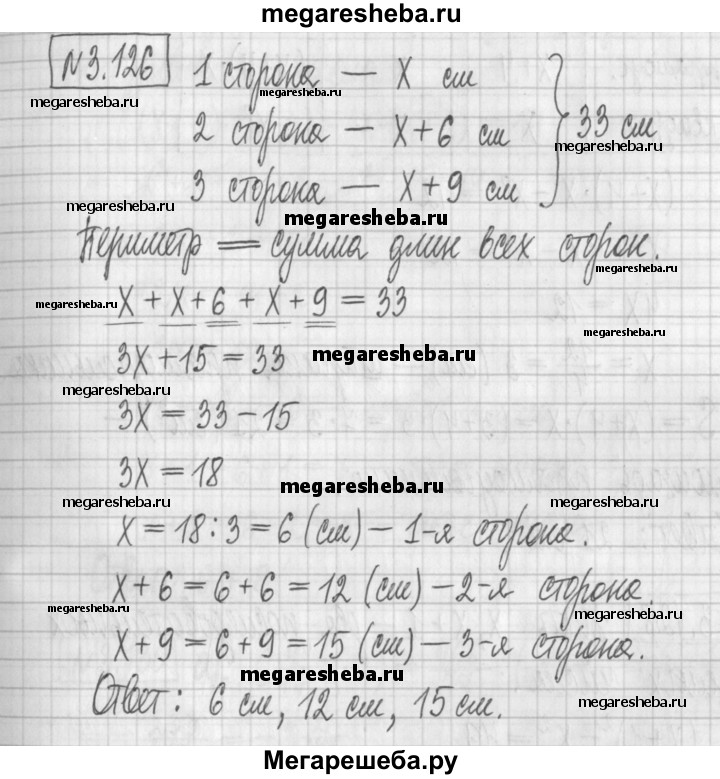 megaresheba.ru
N 3.126
1 сторона — X см
megaresheba.ru
megaresheba.ru
2 сторона — X+6 см
33 см
megaresheba.ru
3 сторона — X+9 см
megaresheba.ru
megaresheba.ru
Периметр = сумма длин всех сторон.
megaresheba.ru
X + X + 6 + X + 9 = 33
megaresheba.ru
megaresheba.ru
3X + 15 = 33
megaresheba.ru
megaresheba.ru
3X = 33 - 15
3X = 18
megaresheba.ru
megaresheba.ru
megaresheba.ru
X = 18 : 3 = 6 (см) — 1-я сторона.
X + 6 = 6 + 6 = 12 (см) — 2-я сторона.
megaresheba.ru
megaresheba.ru
X + 9 = 6 + 9 = 15 (см) — 3-я сторона.
megaresheba.ru
Ответ: 6 см, 12 см, 15 см.
megaresheba.ru
Мегарешеба.ру